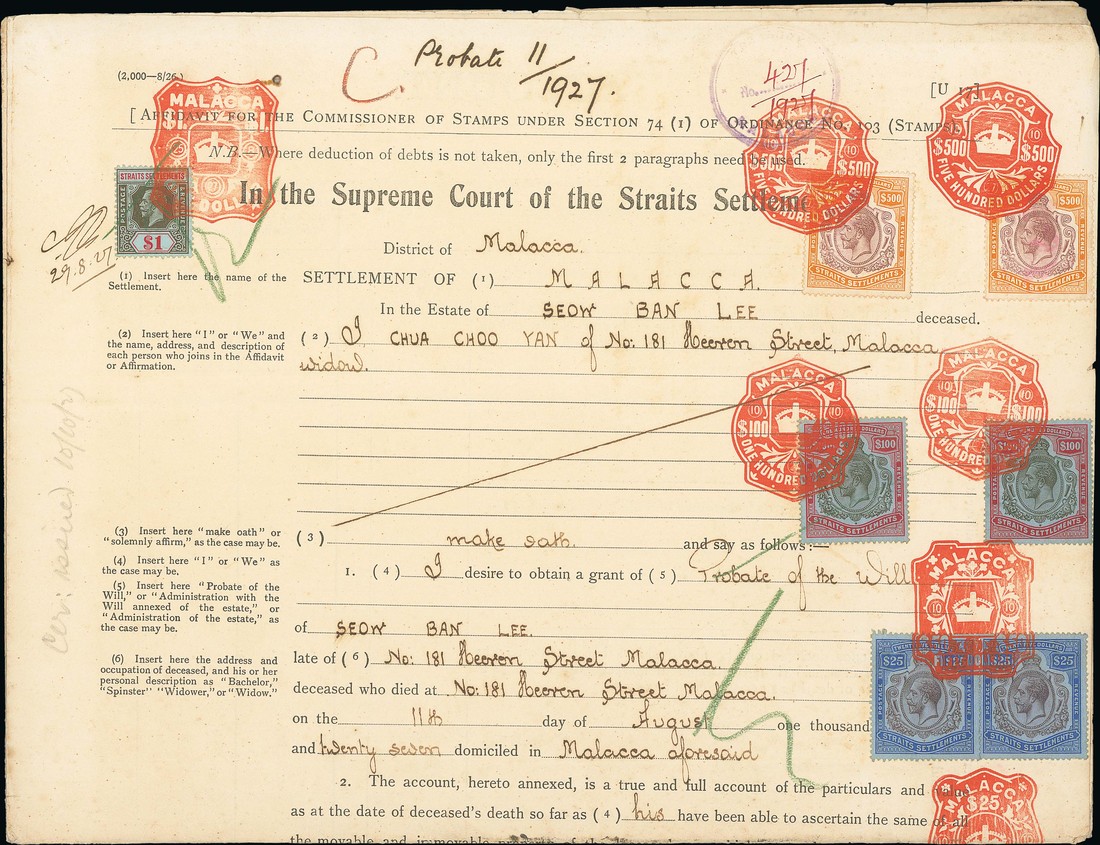 Probate 11/1927.
C.
(2,000—8/26.)
No. 427/1927
[U 17]
[ Affidavit for the Commissioner of Stamps under Section 74 (1) of Ordinance No. 103 (Stamps).]
N.B.—Where deduction of debts is not taken, only the first 2 paragraphs need be used.
In the Supreme Court of the Straits Settleme
MALACCA
DOLLAR
STRAITS SETTLEMENTS
POSTAGE
$1
29.8.27
MALACCA
10
$500 $500
FIVE HUNDRED DOLLARS
MALACCA
10
$500 $500
FIVE HUNDRED DOLLARS
$500
POSTAGE REVENUE
STRAITS SETTLEMENTS
$500
POSTAGE REVENUE
STRAITS SETTLEMENTS
District of Malacca.
(1) Insert here the name of the
Settlement.
SETTLEMENT OF (1) MALACCA.
In the Estate of SEOW BAN LEE deceased.
(2) Insert here "I" or "We" and
the name, address, and description of
each person who joins in the Affidavit
or Affirmation.
(2) I, CHUA CHOO YAN of No: 181 Heeren Street, Malacca,
widow.
MALACCA
10 10
$100 $100
ONE HUNDRED DOLLARS
MALACCA
10 10
$100 $100
ONE HUNDRED DOLLARS
$100
STRAITS SETTLEMENTS
$100
STRAITS SETTLEMENTS
Cer: issued 10/10/27
(3) Insert here "make oath" or
"solemnly affirm," as the case may be.
(3) make oath and say as follows:—
(4) Insert here "I" or "We" as
the case may be.
1. (4) I desire to obtain a grant of (5) Probate of the Will
(5) Insert here "Probate of the
Will," or "Administration with the
Will annexed of the estate," or
"Administration of the estate," as
the case may be.
of SEOW BAN LEE.
(6) Insert here the address and
occupation of deceased, and his or her
personal description as "Bachelor,"
"Spinster" "Widower," or "Widow."
late of (6) No: 181 Heeren Street Malacca.
deceased who died at No: 181 Heeren Street Malacca.
on the 11th day of August one thousand
and twenty seven domiciled in Malacca aforesaid
MALACCA
10 10
FIFTY DOLLARS
$25 $25
POSTAGE REVENUE
STRAITS SETTLEMENTS STRAITS SETTLEMENTS
2. The account, hereto annexed, is a true and full account of the particulars and value
as at the date of deceased's death so far as (4) his have been able to ascertain the same of all
the movable and immovable property of the
MALACCA
$25